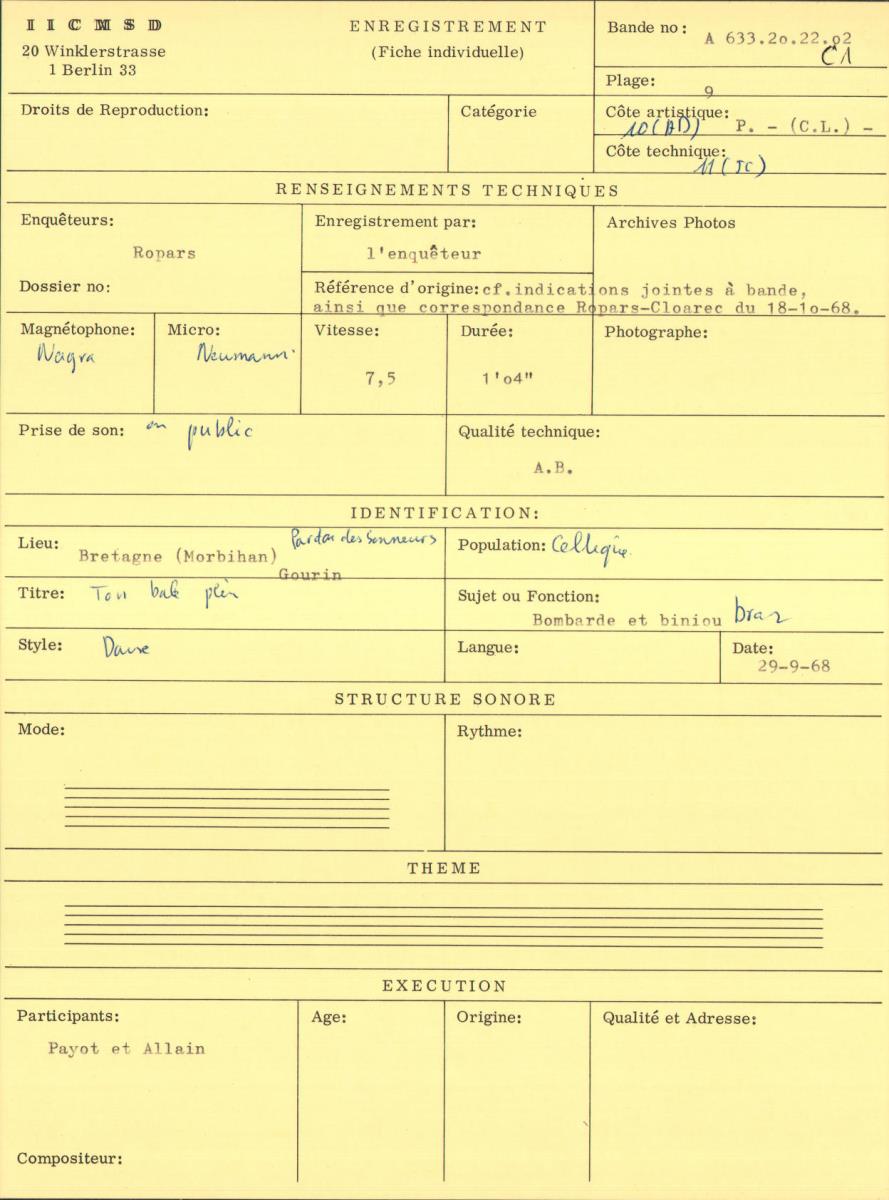 I I C M S D
20 Winklerstrasse
1 Berlin 33
ENREGISTREMENT
(Fiche individuelle)
Bande no: A 633.2o.22.o2
C1
Plage: 9
Droits de Reproduction:
Catégorie
Côte artistique: 10 (AD) P. - (C.L.) -
Côte technique: 11 (JC)
RENSEIGNEMENTS TECHNIQUES
Enquêteurs:
Ropars
Enregistrement par:
l'enquêteur
Archives Photos
Dossier no:
Référence d'origine: cf.indications jointes à bande,
ainsi que correspondance Ropars-Cloarec du 18-1o-68.
Magnétophone:
Nagra
Micro:
Neumann
Vitesse:
7,5
Durée:
1'o4"
Photographe:
Prise de son: en public
Qualité technique:
A.B.
IDENTIFICATION:
Lieu: Bretagne (Morbihan) Pardon des Sonneurs
Gourin
Population: Celtique
Titre: Ton balé plin
Sujet ou Fonction:
Bombarde et biniou braz
Style: Danse
Langue:
Date:
29-9-68
STRUCTURE SONORE
Mode:
Rythme:
THEME
EXECUTION
Participants:
Payot et Allain
Age:
Origine:
Qualité et Adresse:
Compositeur: